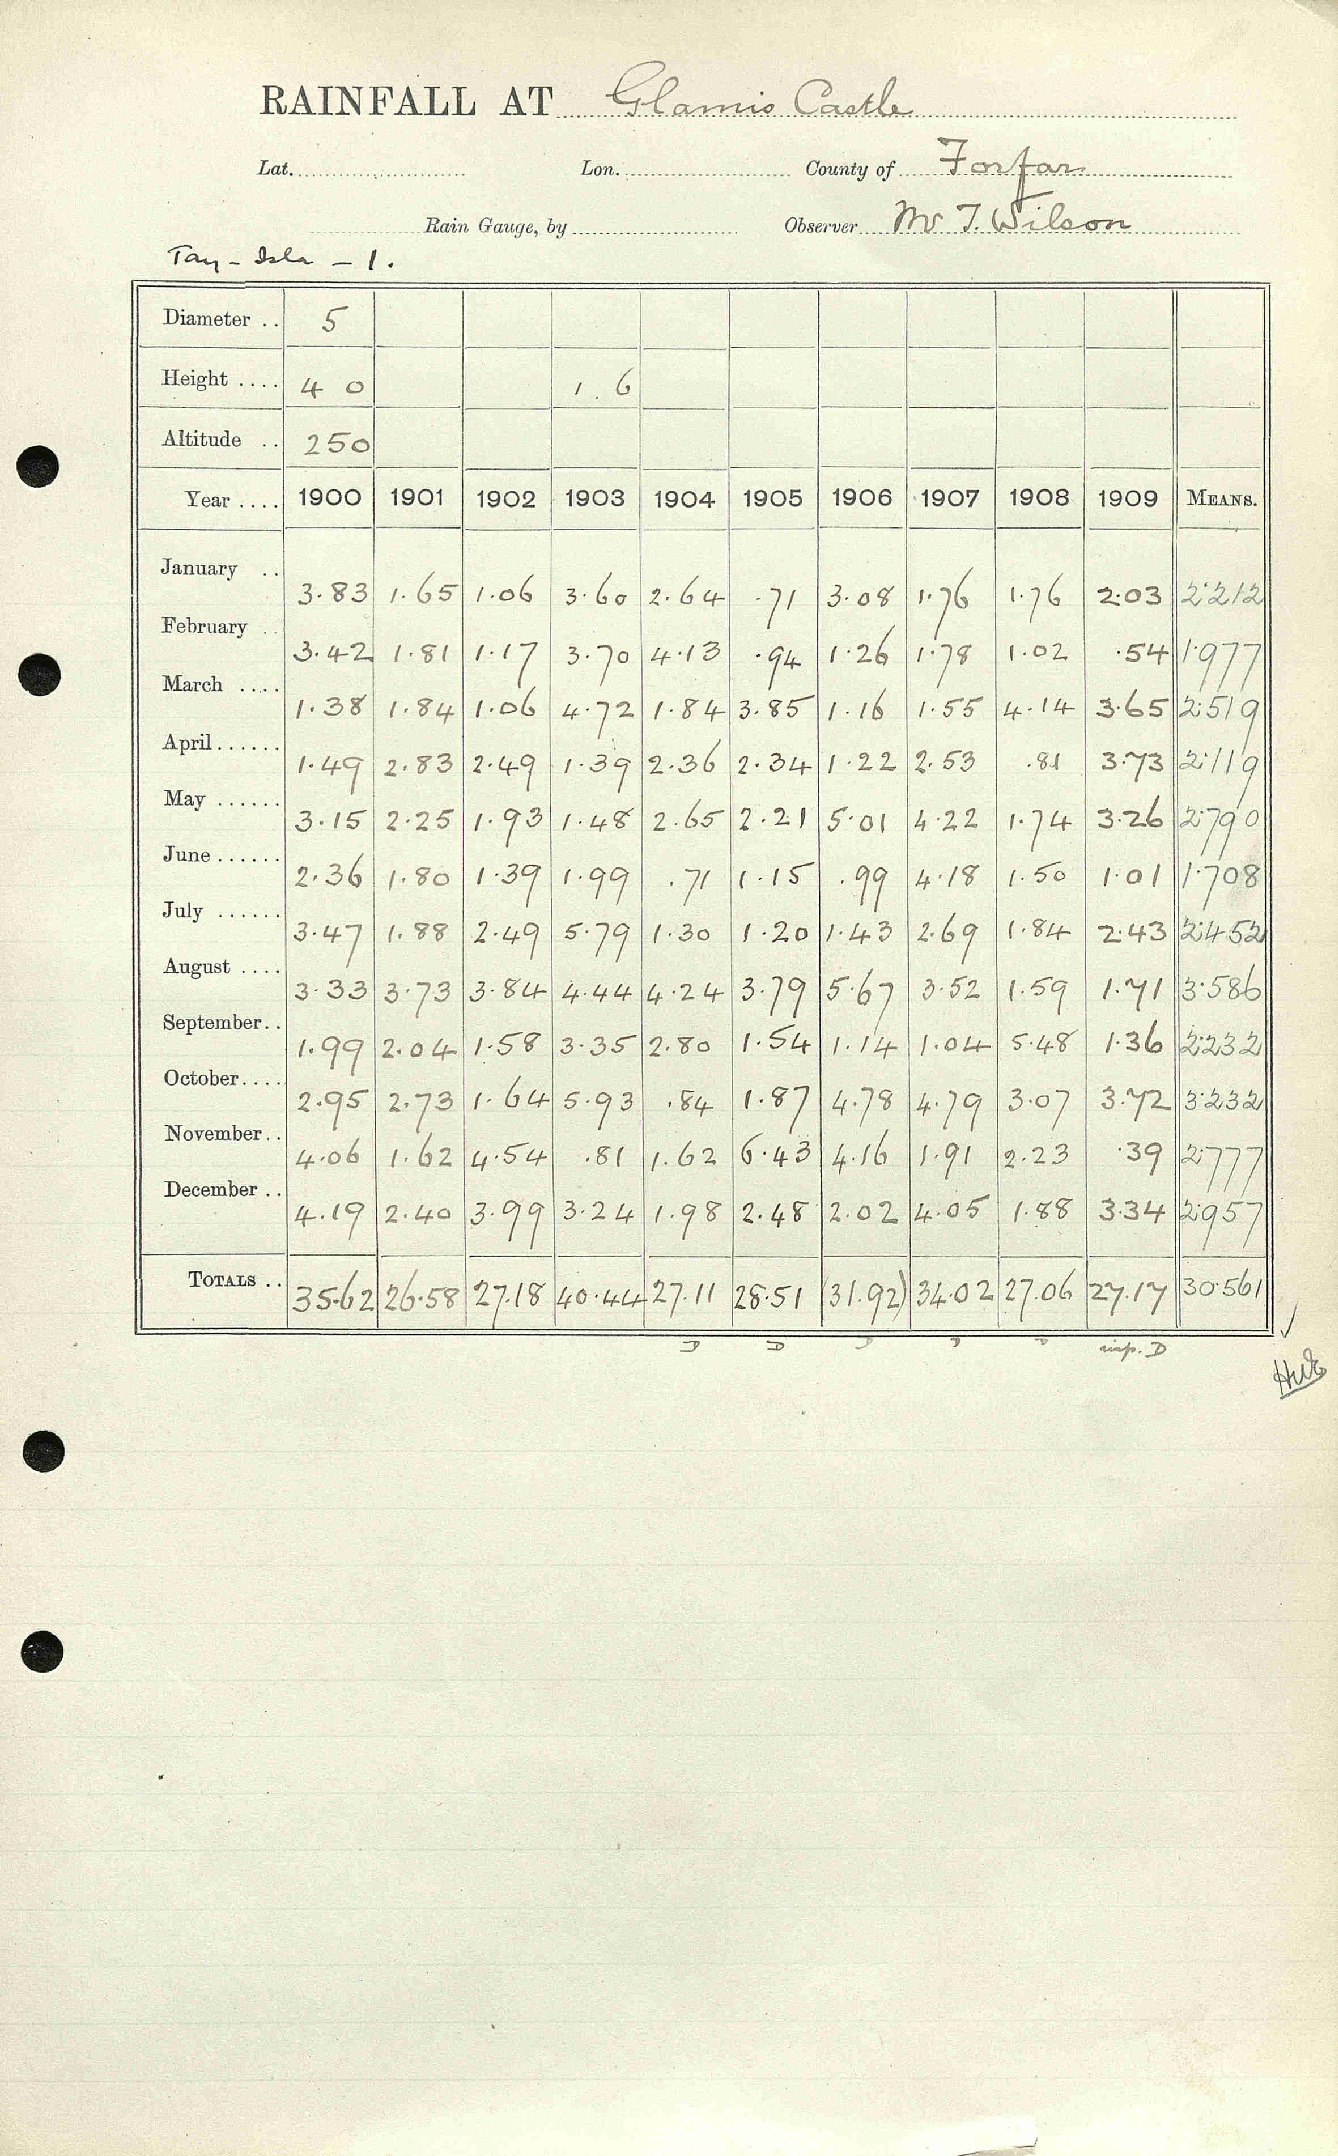 RAINFALL AT Glamis Castle
Lat. Lon. County of Forfar
Rain Gauge, by Observer Mr T. Wilson
Tay - Isla - 1.
Diameter .. 5
Height .... 4 0 1. 6
Altitude .. 250
Year .... 1900 1901 1902 1903 1904 1905 1906 1907 1908 1909 MEANS.
January .. 3.83 1.65 1.06 3.60 2.64 .71 3.08 1.76 1.76 2.03 2.212
February .. 3.42 1.81 1.17 3.70 4.13 .94 1.26 1.78 1.02 .54 1.977
March .... 1.38 1.84 1.06 4.72 1.84 3.85 1.16 1.55 4.14 3.65 2.519
April...... 1.49 2.83 2.49 1.39 2.36 2.34 1.22 2.53 .81 3.73 2.119
May ...... 3.15 2.25 1.93 1.48 2.65 2.21 5.01 4.22 1.74 3.26 2.790
June...... 2.36 1.80 1.39 1.99 .71 1.15 .99 4.18 1.50 1.01 1.708
July ...... 3.47 1.88 2.49 5.79 1.30 1.20 1.43 2.69 1.84 2.43 2.452
August .... 3.33 3.73 3.84 4.44 4.24 3.79 5.67 3.52 1.59 1.71 3.586
September.. 1.99 2.04 1.58 3.35 2.80 1.54 1.14 1.04 5.48 1.36 2.232
October.... 2.95 2.73 1.64 5.93 .84 1.87 4.78 4.79 3.07 3.72 3.232
November.. 4.06 1.62 4.54 .81 1.62 6.43 4.16 1.91 2.23 .39 2.777
December .. 4.19 2.40 3.99 3.24 1.98 2.48 2.02 4.05 1.88 3.34 2.957
TOTALS .. 35.62 26.58 27.18 40.44 27.11 28.51 (31.92) 34.02 27.06 27.17 30.561
D D D D D imp. D